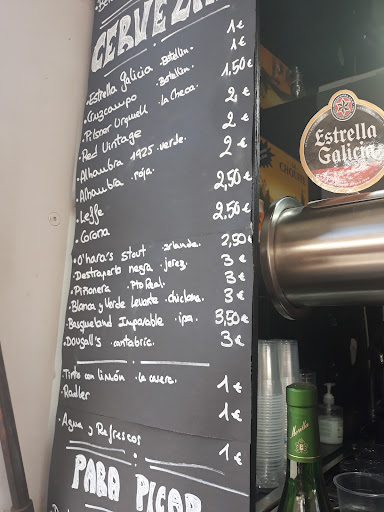 CERVEZA
• Estrella Galicia . Botellín 1€
• Cuzcampo . Botellín 1€
• Pilsner Urquell . La Checa. 1,50€
• Red Vintage 2€
• Alhambra 1925 .verde. 2€
• Alhambra .roja. 2€
• Leffe 2,50€
• Corona 2,50€
• O'hara's Stout .irlanda. 2,50€
• Destraperlo negra .jerez. 3€
• Piñonera . Pto Real. 3€
• Blanca y Verde Levante .chiclana. 3€
• Basqueland Imparable .ipa. 3,50€
• Dougall's .cantabria. 3€
• Tinto con limón .la casera. 1€
• Radler 1€
• Agua y Refrescos 1€
PARA PICAR
Estrella
Galicia